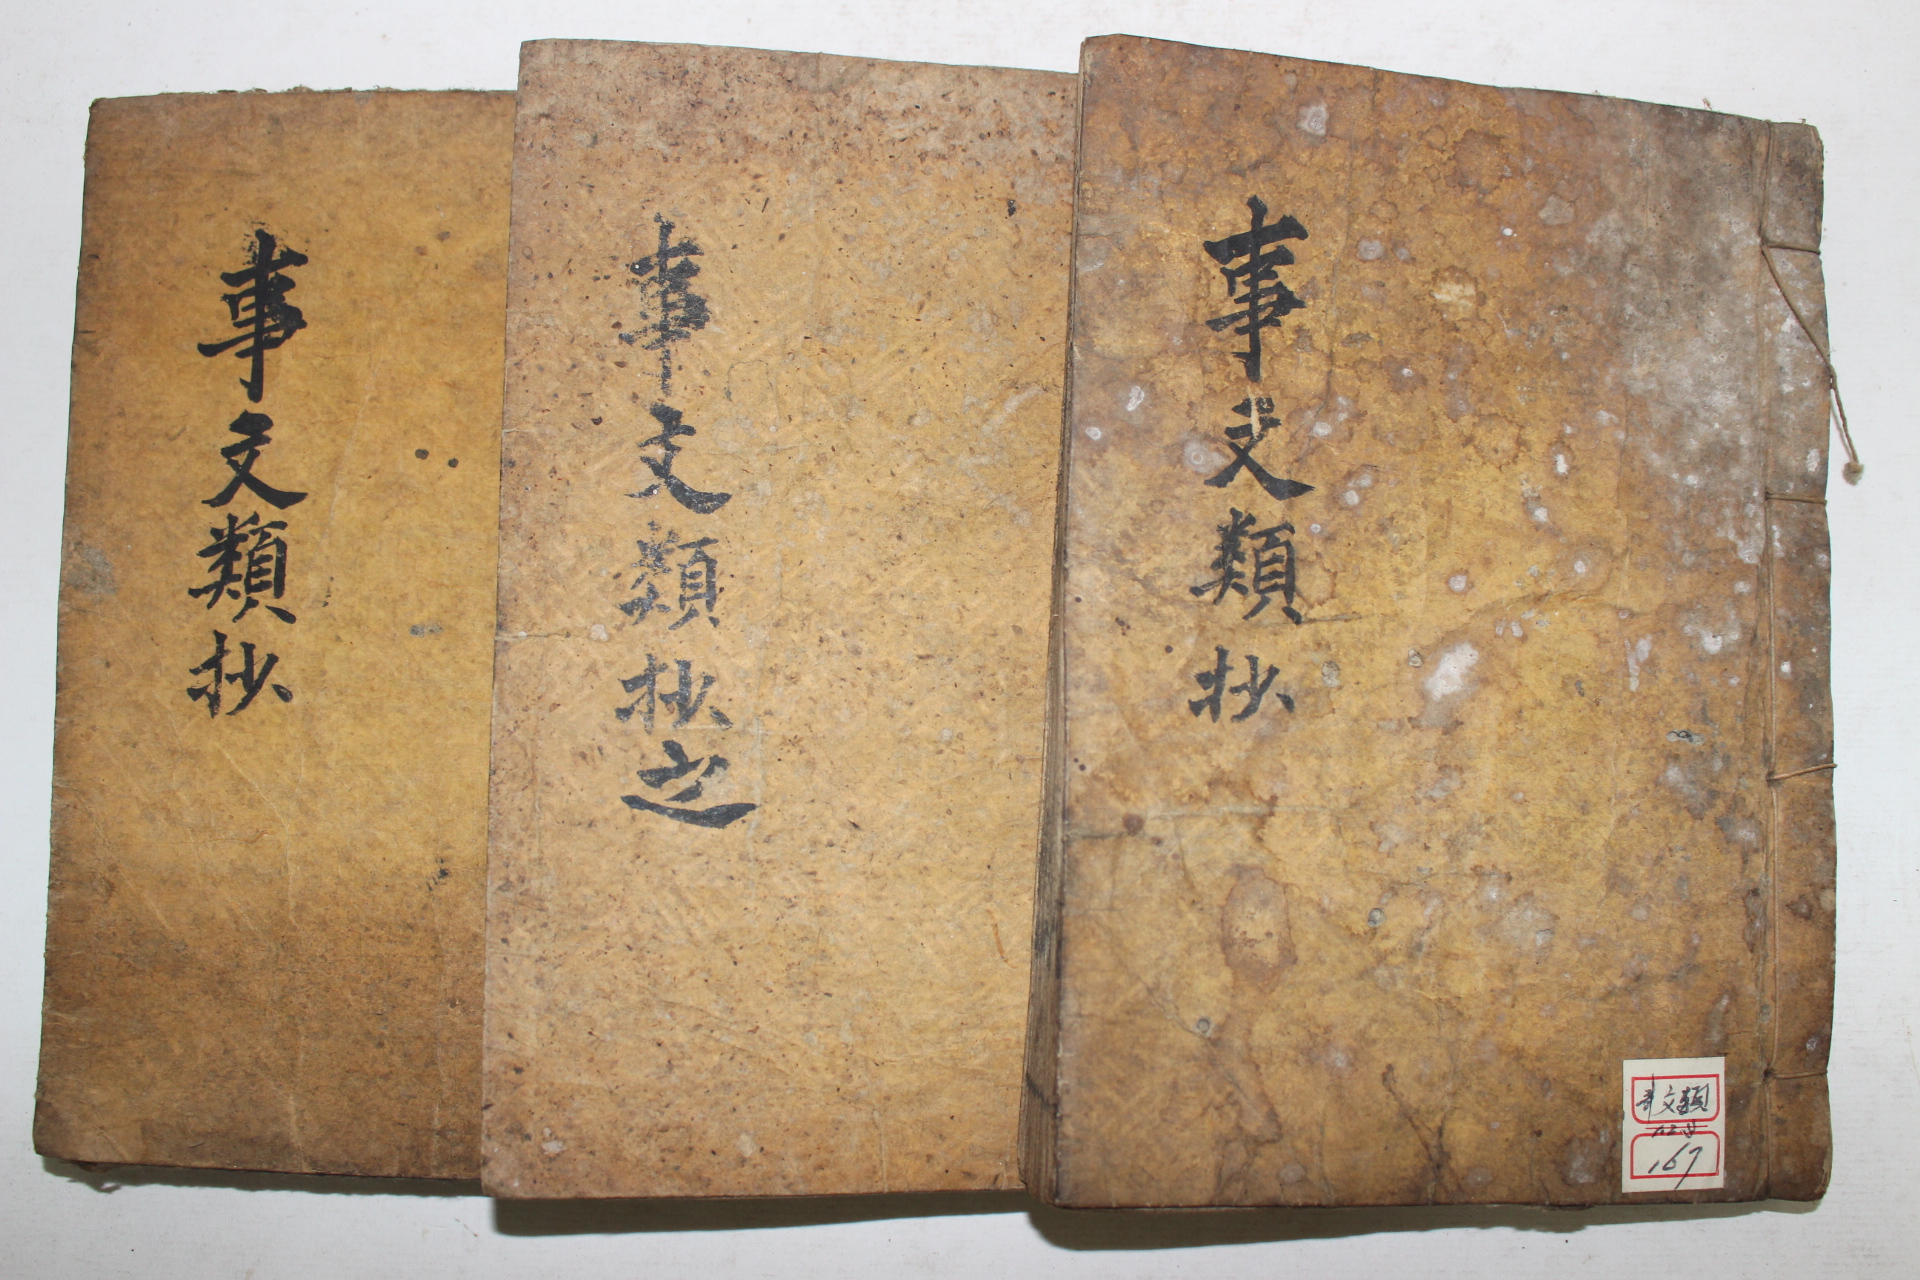 事文類抄
事文類抄
事文類抄
事文類
167